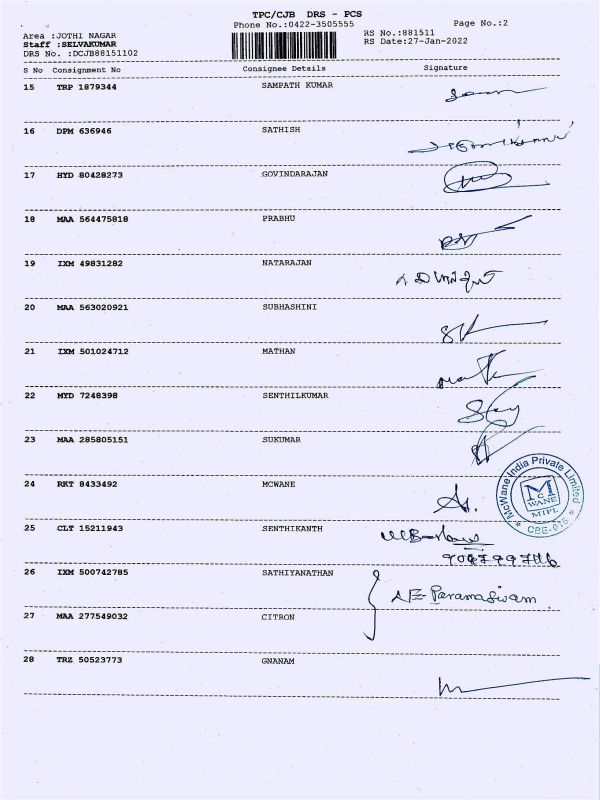 TPC/CJB DRS - PCS
Phone No.:0422-3505555
Page No.:2
Area :JOTHI NAGAR
Staff :SELVAKUMAR
DRS No. :DCJB88151102
RS No.:881511
RS Date:27-Jan-2022
S No Consignment No Consignee Details Signature
15 TRP 1879344 SAMPATH KUMAR
16 DPM 636946 SATHISH
17 HYD 80428273 GOVINDARAJAN
18 MAA 564475818 PRABHU
19 IXM 49831282 NATARAJAN
20 MAA 563020921 SUBHASHINI
21 IXM 501024712 MATHAN
22 MYD 7248398 SENTHILKUMAR
23 MAA 285805151 SUKUMAR
24 RKT 8433492 MCWANE
McWane India Private Limited
MCWANE
MIPL
* CBE-016 *
25 CLT 15211943 SENTHIKANTH
26 IXM 500742785 SATHIYANATHAN
Paramasivam
27 MAA 277549032 CITRON
28 TRZ 50523773 GNANAM